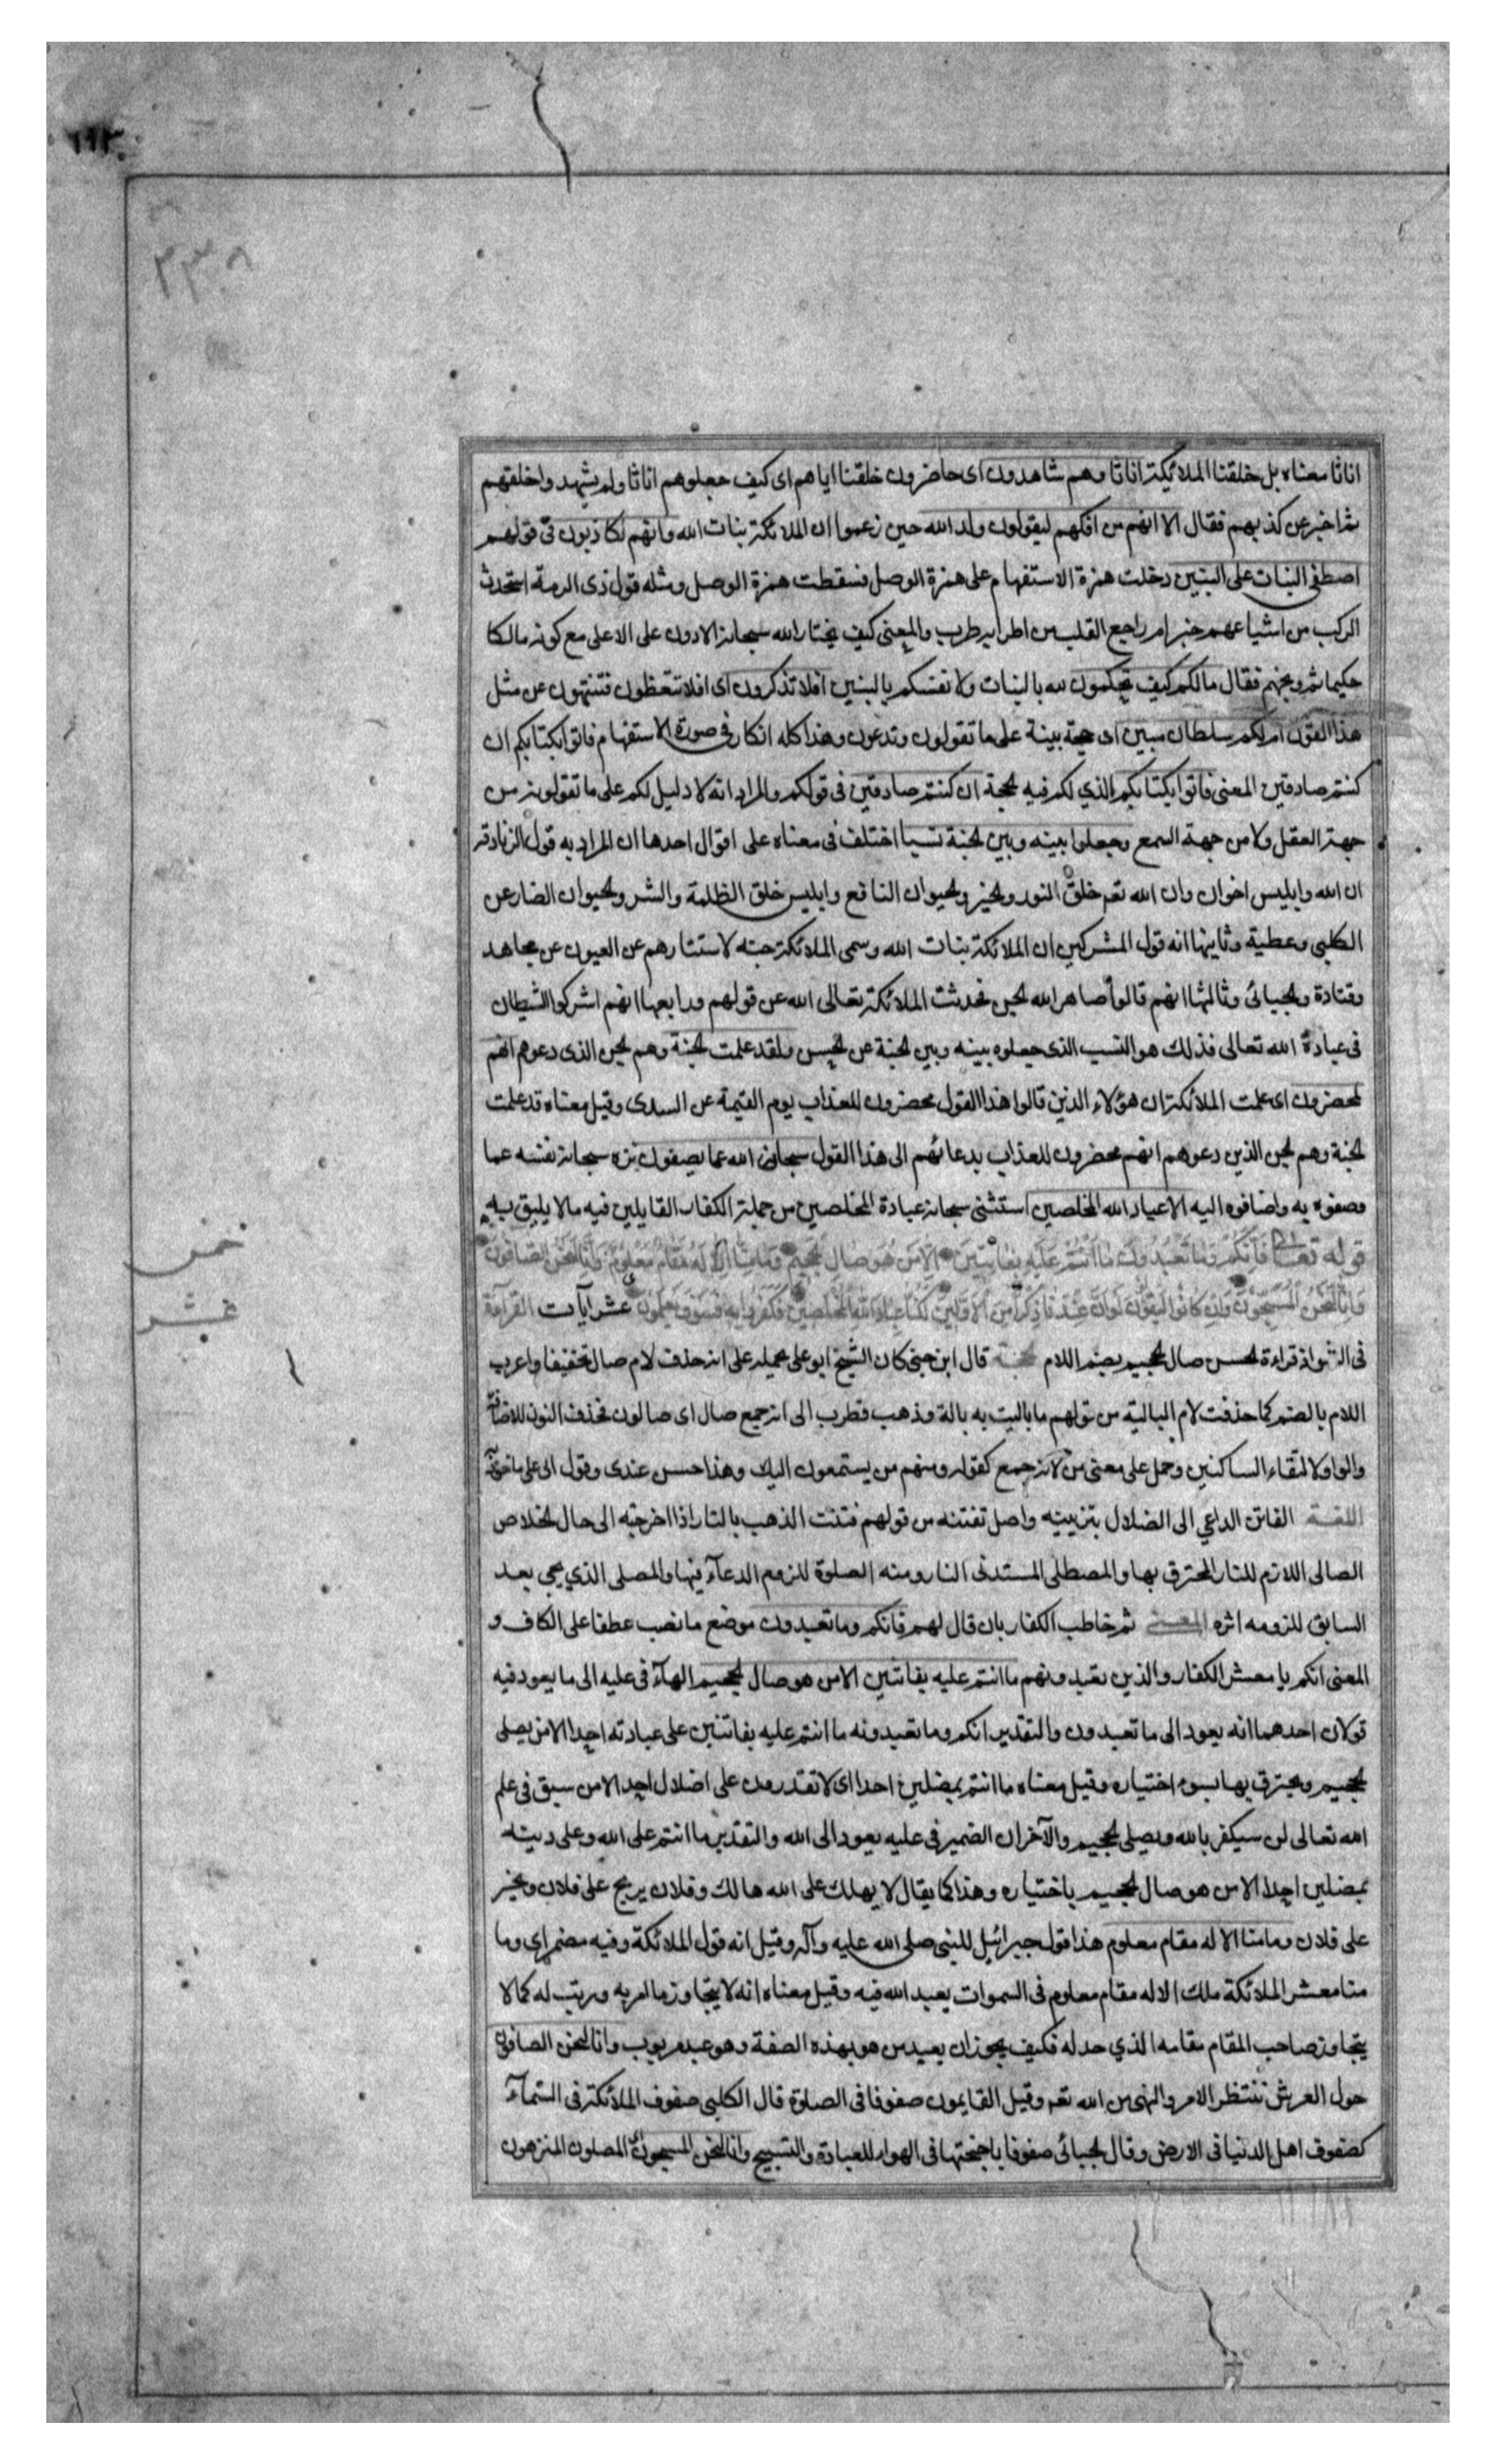 ١١٣
٣٣٨
اناثا معناه بل خلقنا الملائكة اناثا وهم شاهدون اى حاضرون خلقنا اياهم اى كيف جعلوهم اناثا ولم يشهدوا خلقهم
ثم اخبر عن كذبهم فقال الا انهم من افكهم ليقولون ولد الله حين زعموا ان الملائكة بنات الله وانهم لكاذبون فى قولهم
اصطفى البنات على البنين دخلت همزة الاستفهام على همزة الوصل فسقطت همزة الوصل ومثله قول ذى الرمة استحدث
الركب من اشياعهم خبرا ام راجع القلب من اطرابه طرب والمعنى كيف يختار الله سبحانه الادون على الاعلى مع كونه مالكا
حكيما ثم وبخهم فقال مالكم كيف تحكمون لله بالبنات ولانفسكم بالبنين افلا تذكرون اى افلا تتعظون فتنتهون عن مثل
هذا القول ام لكم سلطان مبين اى حجة بينة على ما تقولون وتدعون وهذا كله انكار فى صورة الاستفهام فاتوا بكتابكم ان
كنتم صادقين المعنى فاتوا بكتابكم الذي لكم فيه لحجة ان كنتم صادقين فى قولكم والمراد انه لا دليل لكم على ما تقولونه من
جهة العقل ولا من جهة السمع وجعلوا بينه وبين لجنة نسبا اختلف فى معناه على اقوال احدها ان المراد به قول الزنادقه
ان الله وابليس اخوان وان الله تعم خلق النور ولخير ولحيوان النافع وابليس خلق الظلمة والشر ولحيوان الضار عن
الكلبى وعطية وثانيها انه قول المشركين ان الملائكة بنات الله وسمى الملائكة جنه لاستتارهم عن العيون عن مجاهد
وقتادة ولجبائى وثالثها انهم قالوا صاهر الله لجن فحدثت الملائكة تعالى الله عن قولهم ورابعها انهم اشركوا الشيطان
فى عبادة الله تعالى فذلك هو النسب الذى جعلوه بينه وبين لجنة عن لحسن ولقد علمت لجنة وهم لجن الذى دعوهم انهم
لمحضرون اى علمت الملائكة ان هؤلاء الذين قالوا هذا القول محضرون للعذاب يوم القيمة عن السدى وقيل معناه قد علمت
لجنة وهم لجن الذين دعوهم انهم محضرون للعذاب بدعائهم الى هذا القول سبحان الله عما يصفون نزه سبحانه نفسه عما
وصفوه به واضافوه اليه الاعباد الله المخلصين استثنى سبحانه عبادة المخلصين من جملة الكفار القايلين فيه ما لا يليق به
قوله تعالى فَاِنَّكُمْ وَمَا تَعْبُدُونَ مَا اَنْتُمْ عَلَيْهِ بِفَاتِنِينَ اِلَّا مَنْ هُوَ صَالِ لْجَحِيمِ وَمَا مِنَّا اِلَّا لَهُ مَقَامٌ مَعْلُومٌ وَاِنَّا لَنَحْنُ الصَّافُّونَ
وَاِنَّا لَنَحْنُ الْمُسَبِّحُونَ وَاِنْ كَانُوا لَيَقُولُونَ لَوْ اَنَّ عِنْدَنَا ذِكْرًا مِنَ الْاَوَّلِينَ لَكُنَّا عِبَادَ اللّٰهِ الْمُخْلَصِينَ فَكَفَرُوا بِهِ فَسَوْفَ يَعْلَمُونَ عشر آيات القراءة
خمس
عشر
فى الشواذ قراءة لحسن صال لجحيم بضم اللام لحجة قال ابن جنى كان الشيخ ابو على يحمله على انه حذف لام صال تخفيفا واعرب
اللام بالضم كما حذفت لام البالية من قولهم ما باليت به بالة وذهب قطرب الى انه جمع صال اى صالون فحذف النون للاضافة
والواو لالتقاء الساكنين وحمل على معنى من لانه جمع كقوله ومنهم من يستمعون اليك وهذا حسن عندى وقول ابى على
اللغة الفاتن الداعي الى الضلال بتزيينه واصل تفتنه من قولهم فتنت الذهب بالنار اذا اخرجته الى حال لخلاص
الصالى اللازم للنار المحترق بها والمصطلى المستدفى النار ومنه الصلوة للزوم الدعآء فيها والمصلى الذي يجى بعد
السابق للزومه اثره المعنى ثم خاطب الكفار بان قال لهم فانكم وما تعبدون موضع ما نصب عطفا على الكاف و
المعنى انكم يا معشر الكفار والذين تعبدونهم ما انتم عليه بفاتنين الا من هو صال لجحيم الهآء فى عليه الى ما يعود فيه
قولان احدهما انه يعود الى ما تعبدون والتقدير انكم وما تعبدونه ما انتم عليه بفاتنين على عبادته احدا الا من يصلى
لجحيم ويحترق بها بسوء اختياره وقيل معناه ما انتم بمضلين احدا اى لا تقدرون على اضلال احد الا من سبق فى علم
الله تعالى لن سيكفر بالله ويصلى لجحيم والآخر ان الضمير فى عليه يعود الى الله والتقدير ما انتم على الله وعلى دينه
بمضلين احدا الا من هو صال لجحيم باختياره وهذا كما يقال لا يهلك على الله هالك وفلان يربح على فلان ويخسر
على فلان وما منا الا له مقام معلوم هذا قول جبرائيل للنبى صلى الله عليه وآله وقيل انه قول الملائكة وفيه مضمر اى وما
منا معشر الملائكة ملك الا له مقام معلوم فى السموات يعبد الله فيه وقيل معناه انه لا يتجاوز ما امر به ورتب له كما لا
يتجاوز صاحب المقام مقامه الذي حد له فكيف يجوز ان يعبد من هو بهذه الصفة وهو عبد مربوب وانا لنحن الصافون
حول العرش ننتظر الامر والنهى من الله تعم وقيل القايمون صفوفا فى الصلوة قال الكلبى صفوف الملائكة فى السّمآء
كصفوف اهل الدنيا فى الارض وقال لجبائى صفوفا باجنحتها فى الهواء للعبادة والتسبيح وانا لنحن المسبحون المصلون المنزهون